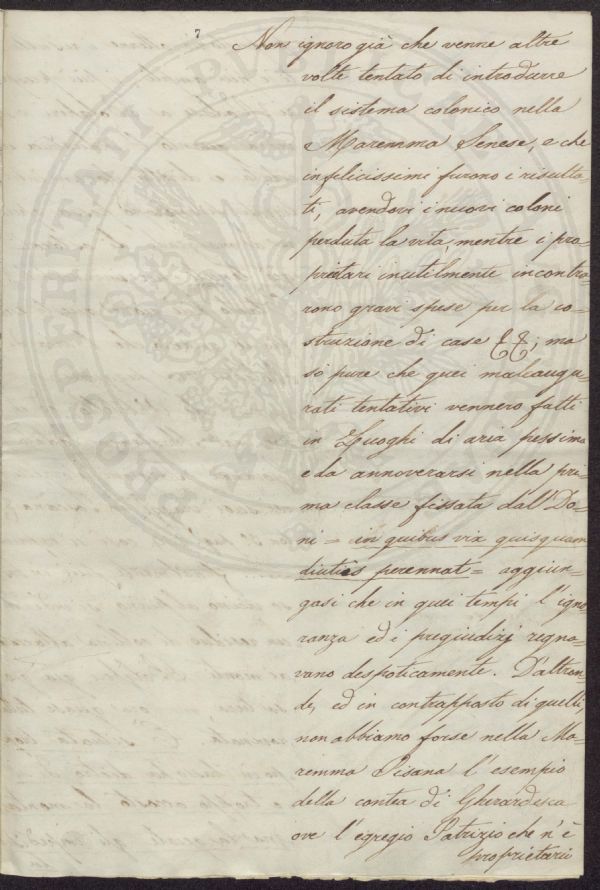 7
Non ignoro già che venne altre
volte tentato di introdurre
il sistema colonico nella
Maremma Senese, e che
infelicissimi furono i risulta-
ti, avendovi i nuovi coloni
perduta la vita, mentre i pro-
prietari inutilmente incontra-
rono gravi spese per la co-
struzione di case &&; ma
sò pure che quei malaugu-
rati tentativi vennero fatti
in Luoghi di aria pessima
e da annoverarsi nella pri-
ma classe fissata dall'Do-
ni = in quibus vix quisquam
diutius perennat = aggiun-
gasi che in quei tempi l'igno-
ranza ed i pregiudizj regna-
vano despoticamente. D'altron-
de, ed in contrapposto di quelli,
non abbiamo forse nella Ma-
remma Pisana l'esempio
della contea di Gherardesca
ove l'egregio Patrizio che n'è
proprietario
PROSPERITATI PUBLICAE